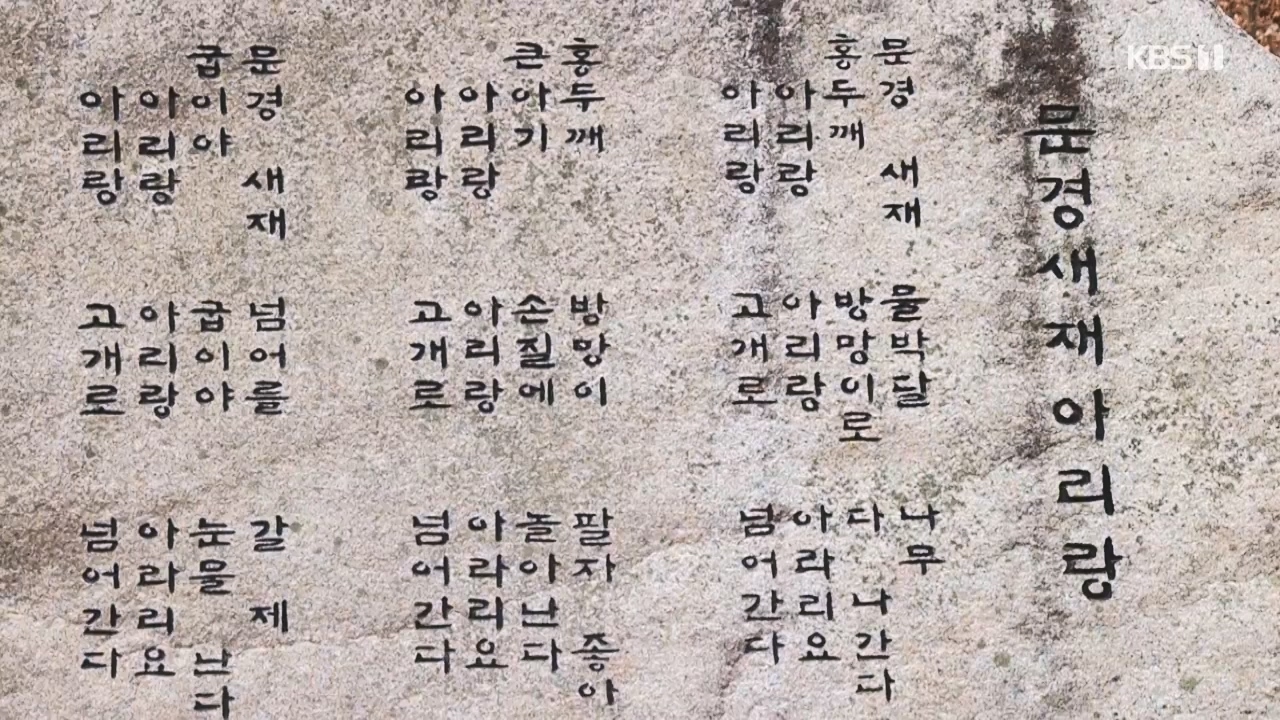 KBS 1
문경새재아리랑
문경 새재 물박달 나무
홍두깨 방망이로 다 나간다
아리랑 아리랑 아라리요
아리랑 고개로 넘어간다
홍두깨 방망이 팔자 좋아
큰아기 손질에 놀아난다
아리랑 아리랑 아라리요
아리랑 고개로 넘어간다
문경 새재 넘어를 갈 제
굽이야 굽이야 눈물 난다
아리랑 아리랑 아라리요
아리랑 고개로 넘어간다